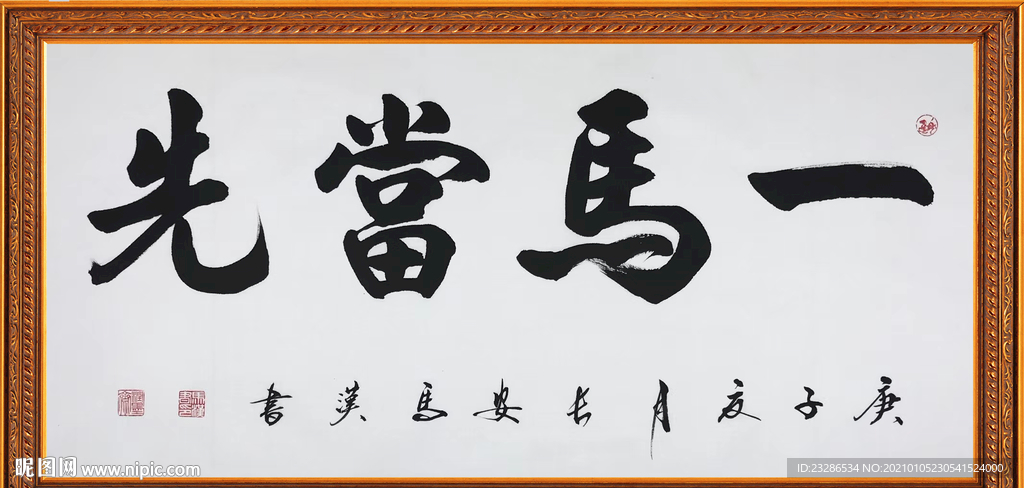 一馬當先
庚子夏月長安馬漢書
昵图网 www.nipic.com
ID:23286534 NO:20210105230541524000